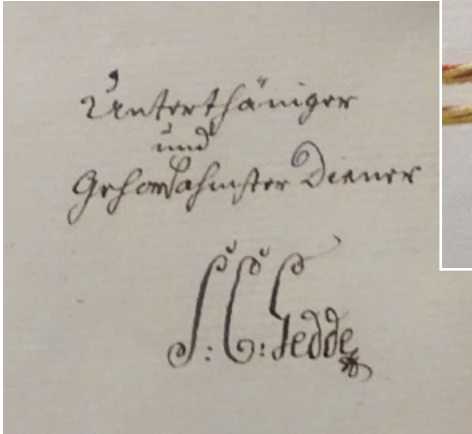 Unterthäniger
und
Gehorsahmster Diener
S: C: Gedde